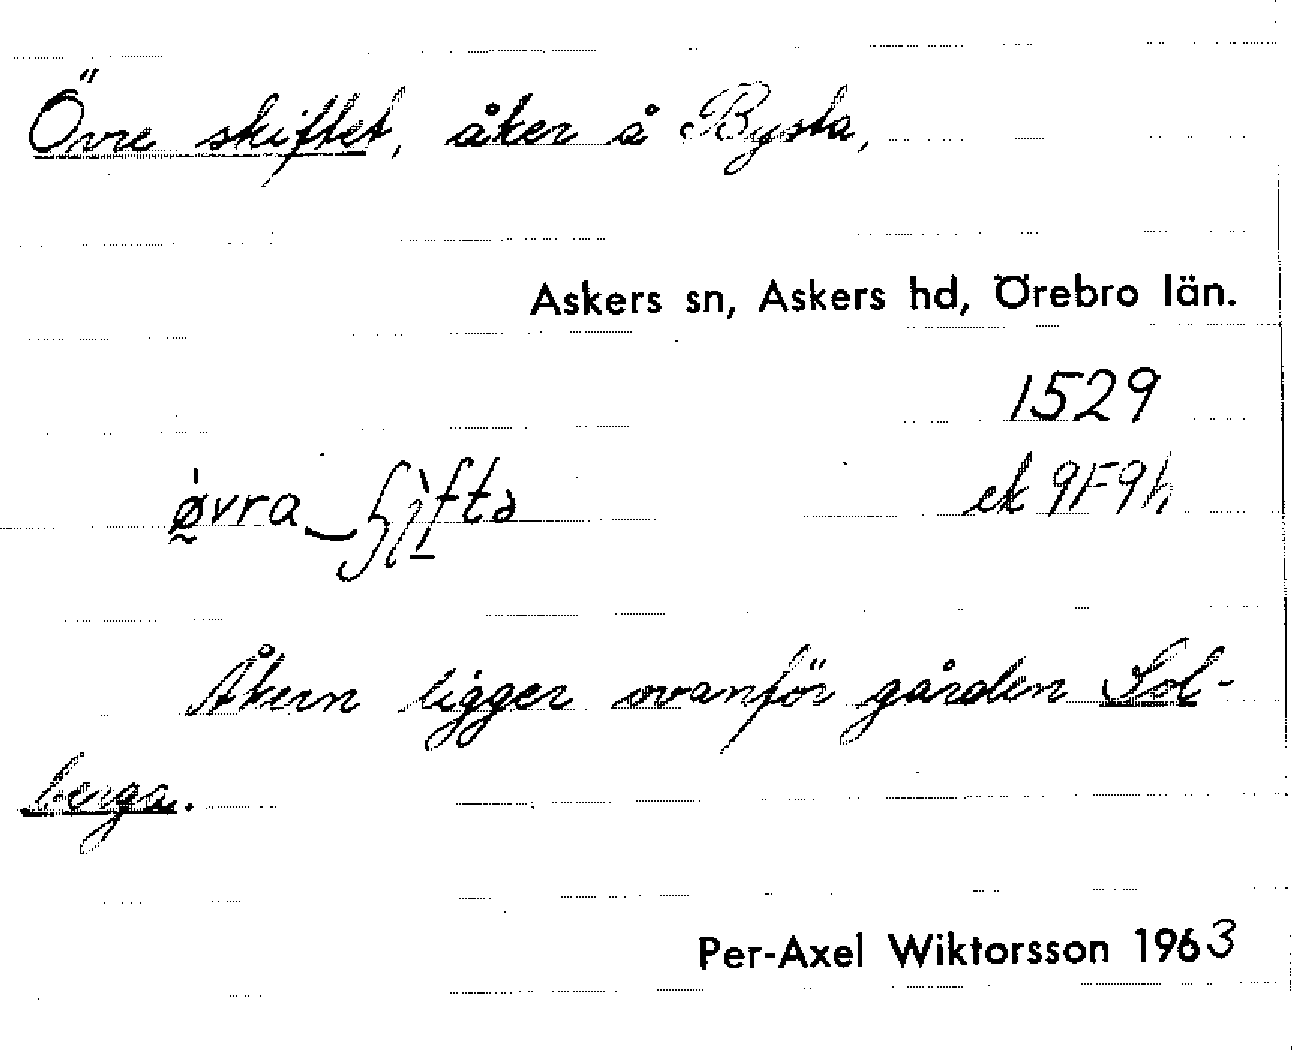 Övre skiftet, åker å Bysta,
Askers sn, Askers hd, Örebro län.
1529
ek 9F9h
Åkern ligger ovanför gården Sol-
berga.
Per-Axel Wiktorsson 1963